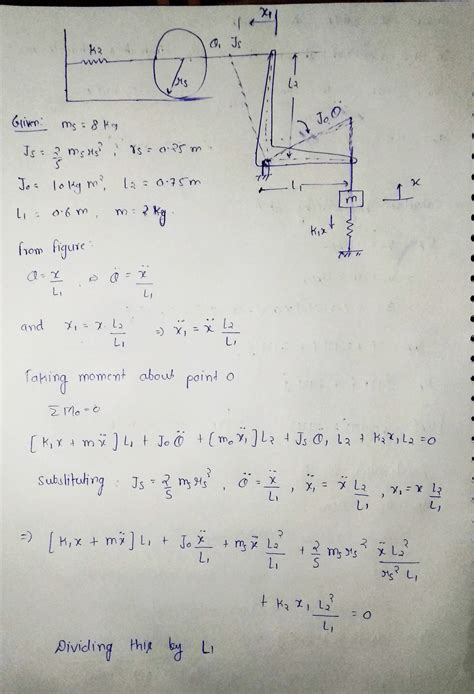 x₁
K₂
θ₁ Js
rs
L₂
J₀ θ̈
L₁
m
x
K₁x
Given: ms = 8 kg
Js = 2/5 ms rs², rs = 0.25 m
J₀ = 10 kg m², L₂ = 0.75 m
L₁ = 0.6 m, m = 2 kg
from figure:
θ = x/L₁, ⇒ θ̈ = ẍ/L₁
and x₁ = x·L₂/L₁ ⇒ ẍ₁ = ẍ L₂/L₁
Taking moment about point O
ΣM₀ = 0
[K₁x + mẍ] L₁ + J₀ θ̈ + [m₀ẍ₁] L₂ + Js θ̈₁ L₂ + K₂x₁L₂ = 0
Substituting: Js = 2/5 ms rs², θ̈ = ẍ/L₁, ẍ₁ = ẍ L₂/L₁, x₁ = x L₂/L₁
⇒ [K₁x + mẍ] L₁ + J₀ ẍ/L₁ + ms ẍ L₂²/L₁ + 2/5 ms rs² ẍ L₂²/rs² L₁
+ K₂ x₁ L₂²/L₁ = 0
Dividing this by L₁